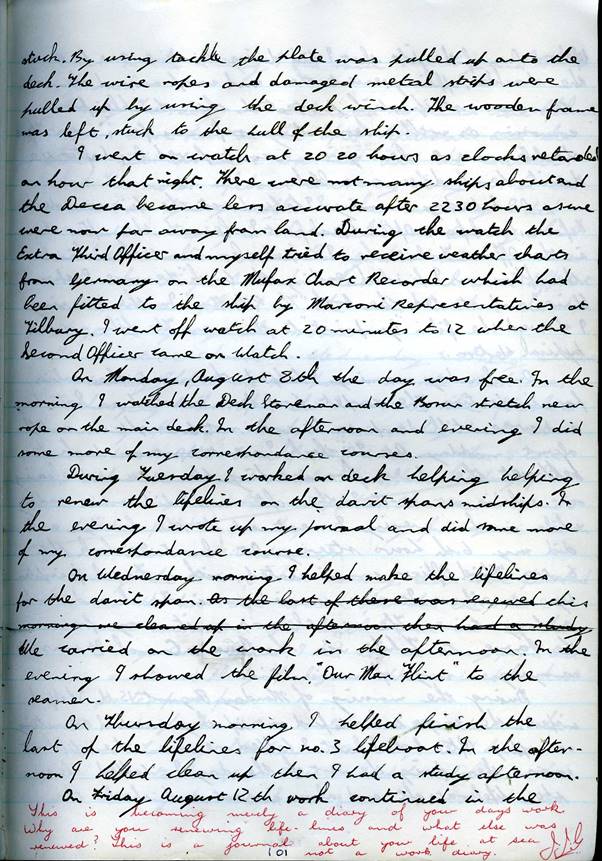 stuck. By using tackle the plate was pulled up onto the
deck. The wire ropes and damaged metal strips were
pulled up by using the deck winch. The wooden frame
was left, stuck to the hull of the ship.
I went on watch at 20 20 hours as clocks retarded
an hour that night. There were not many ships about and
the Decca became less accurate after 2230 hours as we
were now far away from land. During the watch the
Extra Third Officer and myself tried to receive weather charts
from Germany on the Mufax Chart Recorder which had
been fitted to the ship by Marconi Representatives at
Tilbury. I went off watch at 20 minutes to 12 when the
Second Officer came on Watch.
On Monday, August 8th the day was free. In the
morning I watched the Deck Storeman and the Bosun stretch new
rope on the main deck. In the afternoon and evening I did
some more of my correspondance courses.
During Tuesday I worked on deck helping helping
to renew the lifelines on the davit spans midships. In
the evening I wrote up my journal and did some more
of my correspondance course.
On Wednesday morning I helped make the lifelines
for the davit span. As the last of these was renewed this
morning we cleaned up in the afternoon then had a study
We carried on the work in the afternoon. In the
evening I showed the film "Our Man Flint" to the
seamen.
On Thursday morning I helped finish the
last of the lifelines for no. 3 lifeboat. In the after-
noon I helped clean up then I had a study afternoon.
On Friday August 12th work continued in the
This is becoming merely a diary of your days work
Why are you renewing life-lines and what else was
renewed? This is a journal about your life at sea
not a work diary.
101